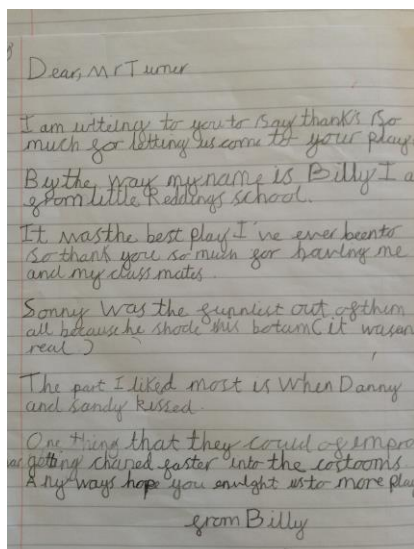 Dear, Mr Turner
I am utteing to you to say thank's so
much for letting us come to your play
By the way my name is Billy I a
from little Reddings school.
It was the best play I've ever been to
so thank you so much for having me
and my class mates.
Sonny was the funniest out of them
all because he shode his botam (it wasen
real)
The part I liked most is When Danny
and sandy kissed.
One thing that they could of impro
getting chaned faster into the costooms
Any ways hope you us to more play
from Billy